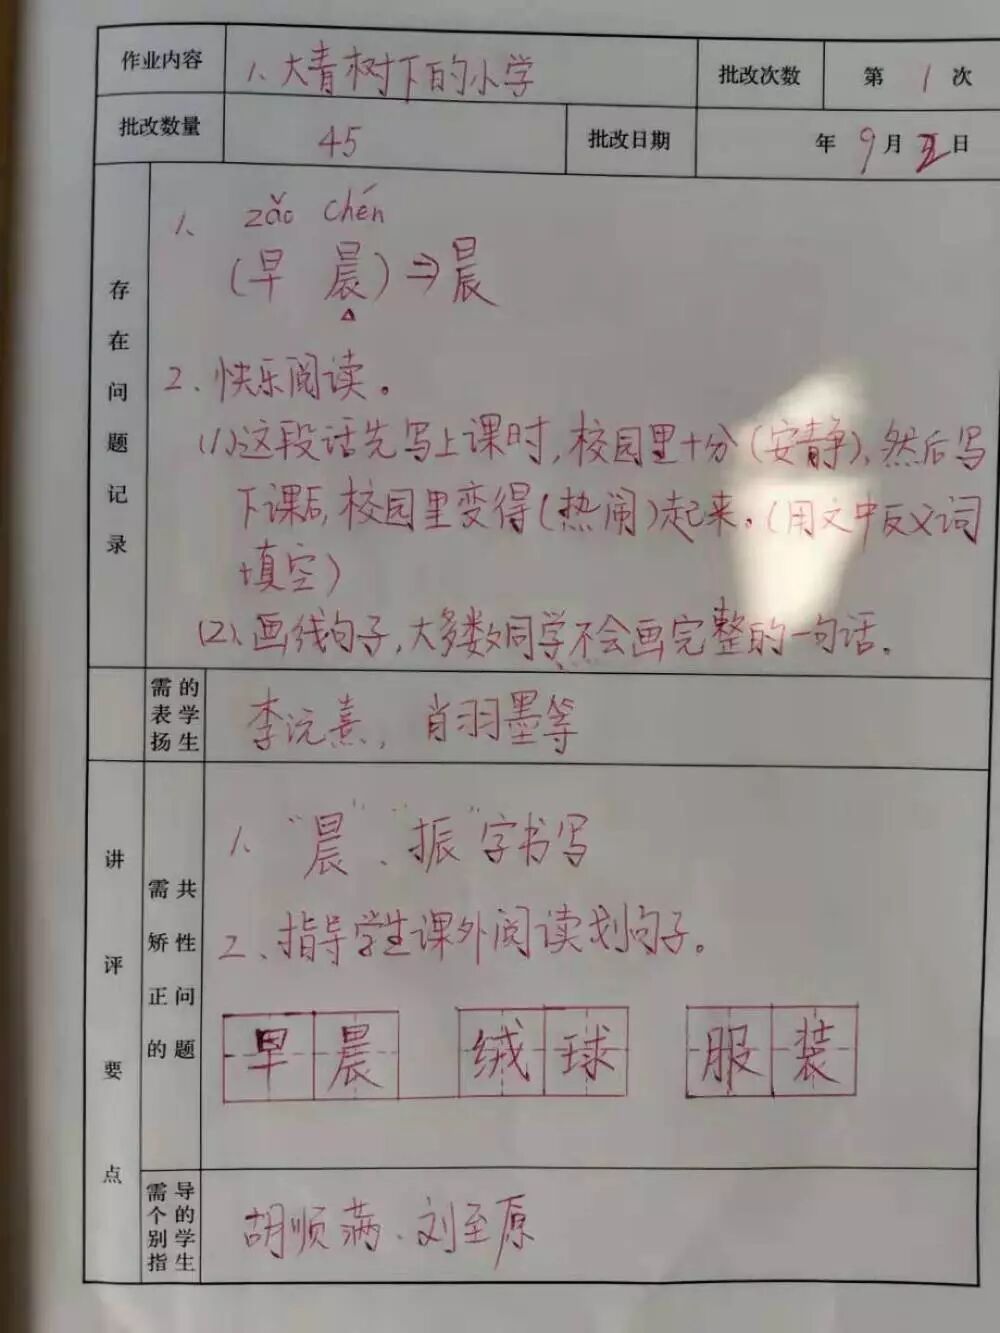 作业内容 1、大青树下的小学 批改次数 第 1 次
批改数量 45 批改日期 年 9 月 日
存在问题记录
1、 zǎo chén
(早 晨)⇒晨
2、快乐阅读。
(1)、这段话先写上课时,校园里十分(安静),然后写
下课后,校园里变得(热闹)起来。(用文中反义词
填空)
(2)、画线句子,大多数同学不会画完整的一句话。
需表扬的学生
李沅熹,肖羽墨等
讲评要点
需矫正的共性问题
1、"晨"、"振"字书写
2、指导学生课外阅读划句子。
早晨 绒球 服装
需个别指导的学生
胡顺满、刘至原